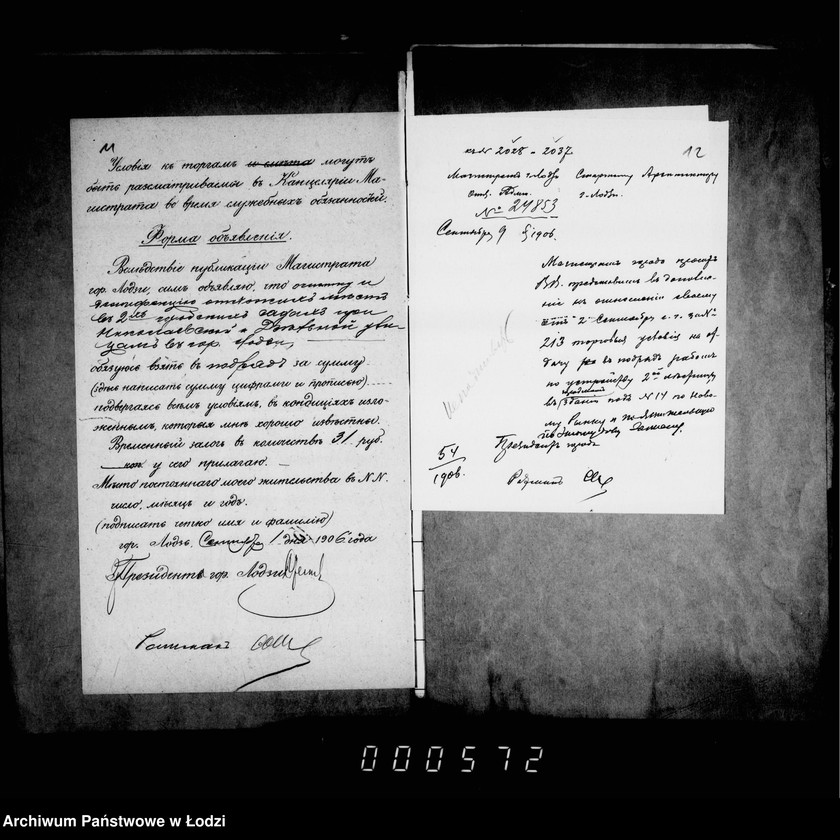 11
Условія къ торгамъ и смѣта могутъ
быть разсматриваемы въ Канцеляріи Ма-
гистрата во время служебныхъ обязанностей.
Форма объявленія.
Вслѣдствіе публикаціи Магистрата
гор. Лодзи, симъ объявляю, что очистку и
дезинфекцію отхожихъ мѣстъ
въ 2хъ городскихъ садахъ при
Николаевской и Дзѣльной ули-
цамъ въ гор. Лодзи,
обязуюсь взять въ подрядъ за сумму
(здѣсь написать сумму цифрами и прописью)....
подвергаясь всѣмъ условіямъ, въ кондиціяхъ изло-
женнымъ, которыя мнѣ хорошо извѣстны.
Временный залогъ въ количествѣ 31 руб.
коп у сего прилагаю.
Мѣсто постояннаго моего жительства въ N.N.
число, мѣсяцъ и годъ.
(подписать четко имя и фамилію)
гор. Лодзь, Сентября 1 дня 1906 года
Президентъ гор. Лодзи
12
2028 - 2037
Магистратъ г. Лодзи
Старшему Архитектору
г. Лодзи.
№ 24853
Сентября 9 1906.
Магистратъ города проситъ
В.В. представить въ дополне-
ніе къ отношенію своему
2 Сентября с. г. за №
213 торговыя условія на от-
дачу въ подрядъ работъ
по устройству 2
въ зданіи подъ N 14 по Ново-
му Рынку
Президентъ города
54
1906.
000572
Archiwum Państwowe w Łodzi